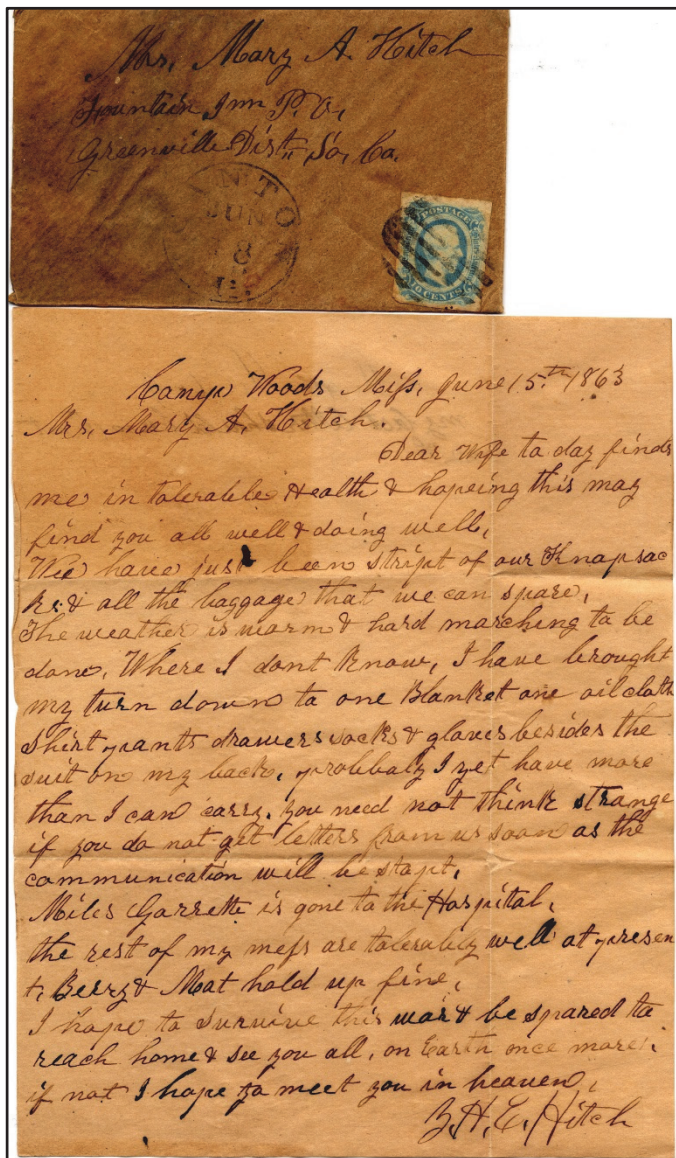 Mrs. Mary A. Hitch
Fountain Inn P.O.,
Greenville Dist= So, Ca.
NTO
JUN
8
POSTAGE
CENTS
Camp Woods Miss, June 15.th 1863
Mrs, Mary A. Hitch.
Dear Wife to day finds
me in tolerable Health & hopeing this may
find you all well & doing well,
Wee have just been stript of our Knapsac
ks. & all the baggage that we can spare,
The weather is warm & hard marching to be
done, Where I dont know, I have brought
my turn down to one Blanket one oil cloth
Shirt pants drawers socks & gloves besides the
suit on my back, probbaly I yet have more
than I can carry. you need not think strange
if you do not get letters from us soon as the
communication will be stopt,
Miles Garrette is gone to the Hospital,
the rest of my mess are tolerably well at presen
t, Berry & Mat hold up fine,
I hope to survive this war & be spared to
reach home & see you all, on Earth once more,
if not I hope to meet you in heaven,
H. E. Hitch